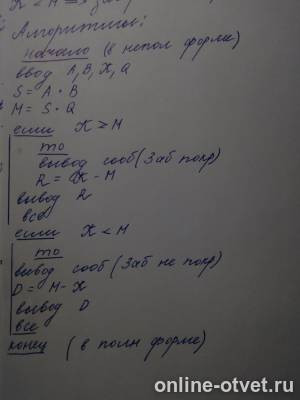 X < M
Алгоритм:
начало (в непол форме)
ввод A, B, X, Q
S = A · B
M = S · Q
если X ≥ M
то
вывод сооб (Заб покр)
R = X - M
вывод R
все
если X < M
то
вывод сооб (Заб не покр)
D = M - X
вывод D
все
конец (в полн форме)
online-otvet.ru